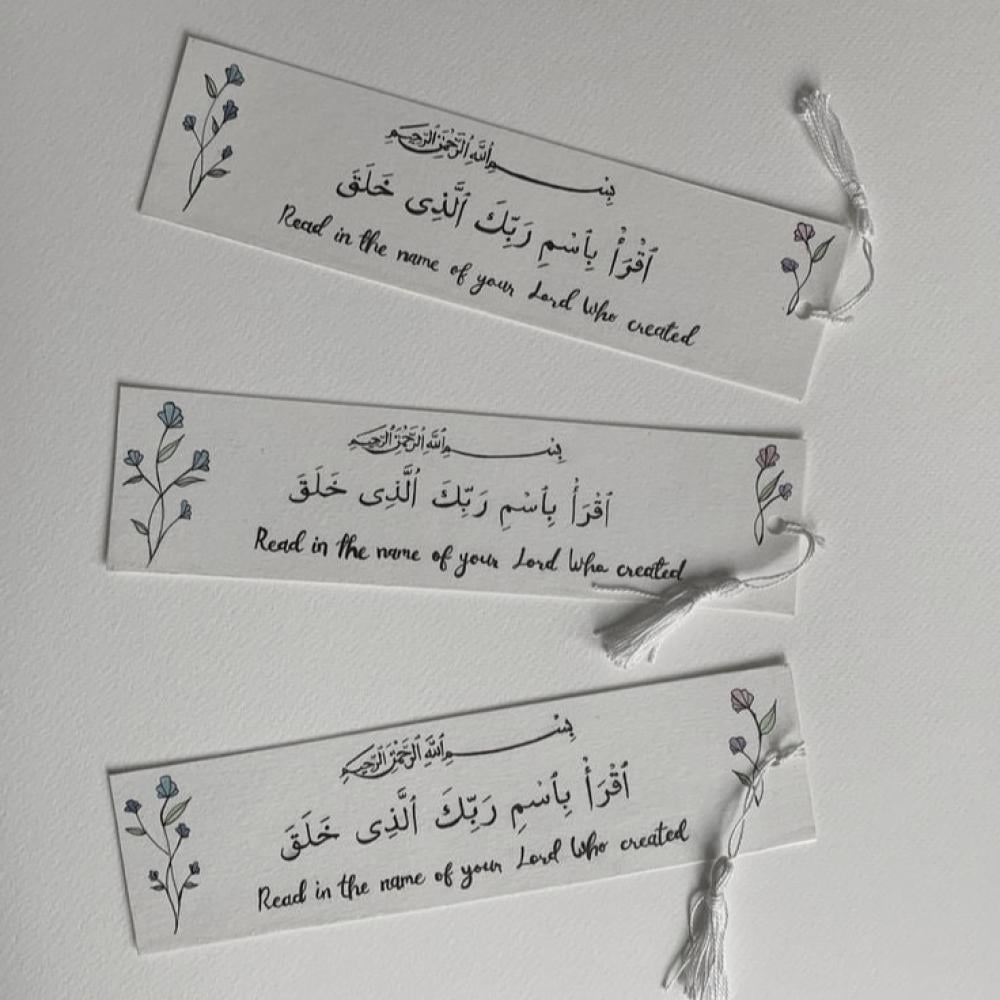 بِسْمِ اللَّهِ الرَّحْمَٰنِ الرَّحِيمِ
ٱقْرَأْ بِٱسْمِ رَبِّكَ ٱلَّذِى خَلَقَ
Read in the name of your Lord Who created
بِسْمِ اللَّهِ الرَّحْمَٰنِ الرَّحِيمِ
ٱقْرَأْ بِٱسْمِ رَبِّكَ ٱلَّذِى خَلَقَ
Read in the name of your Lord Who created
بِسْمِ اللَّهِ الرَّحْمَٰنِ الرَّحِيمِ
ٱقْرَأْ بِٱسْمِ رَبِّكَ ٱلَّذِى خَلَقَ
Read in the name of your Lord Who created